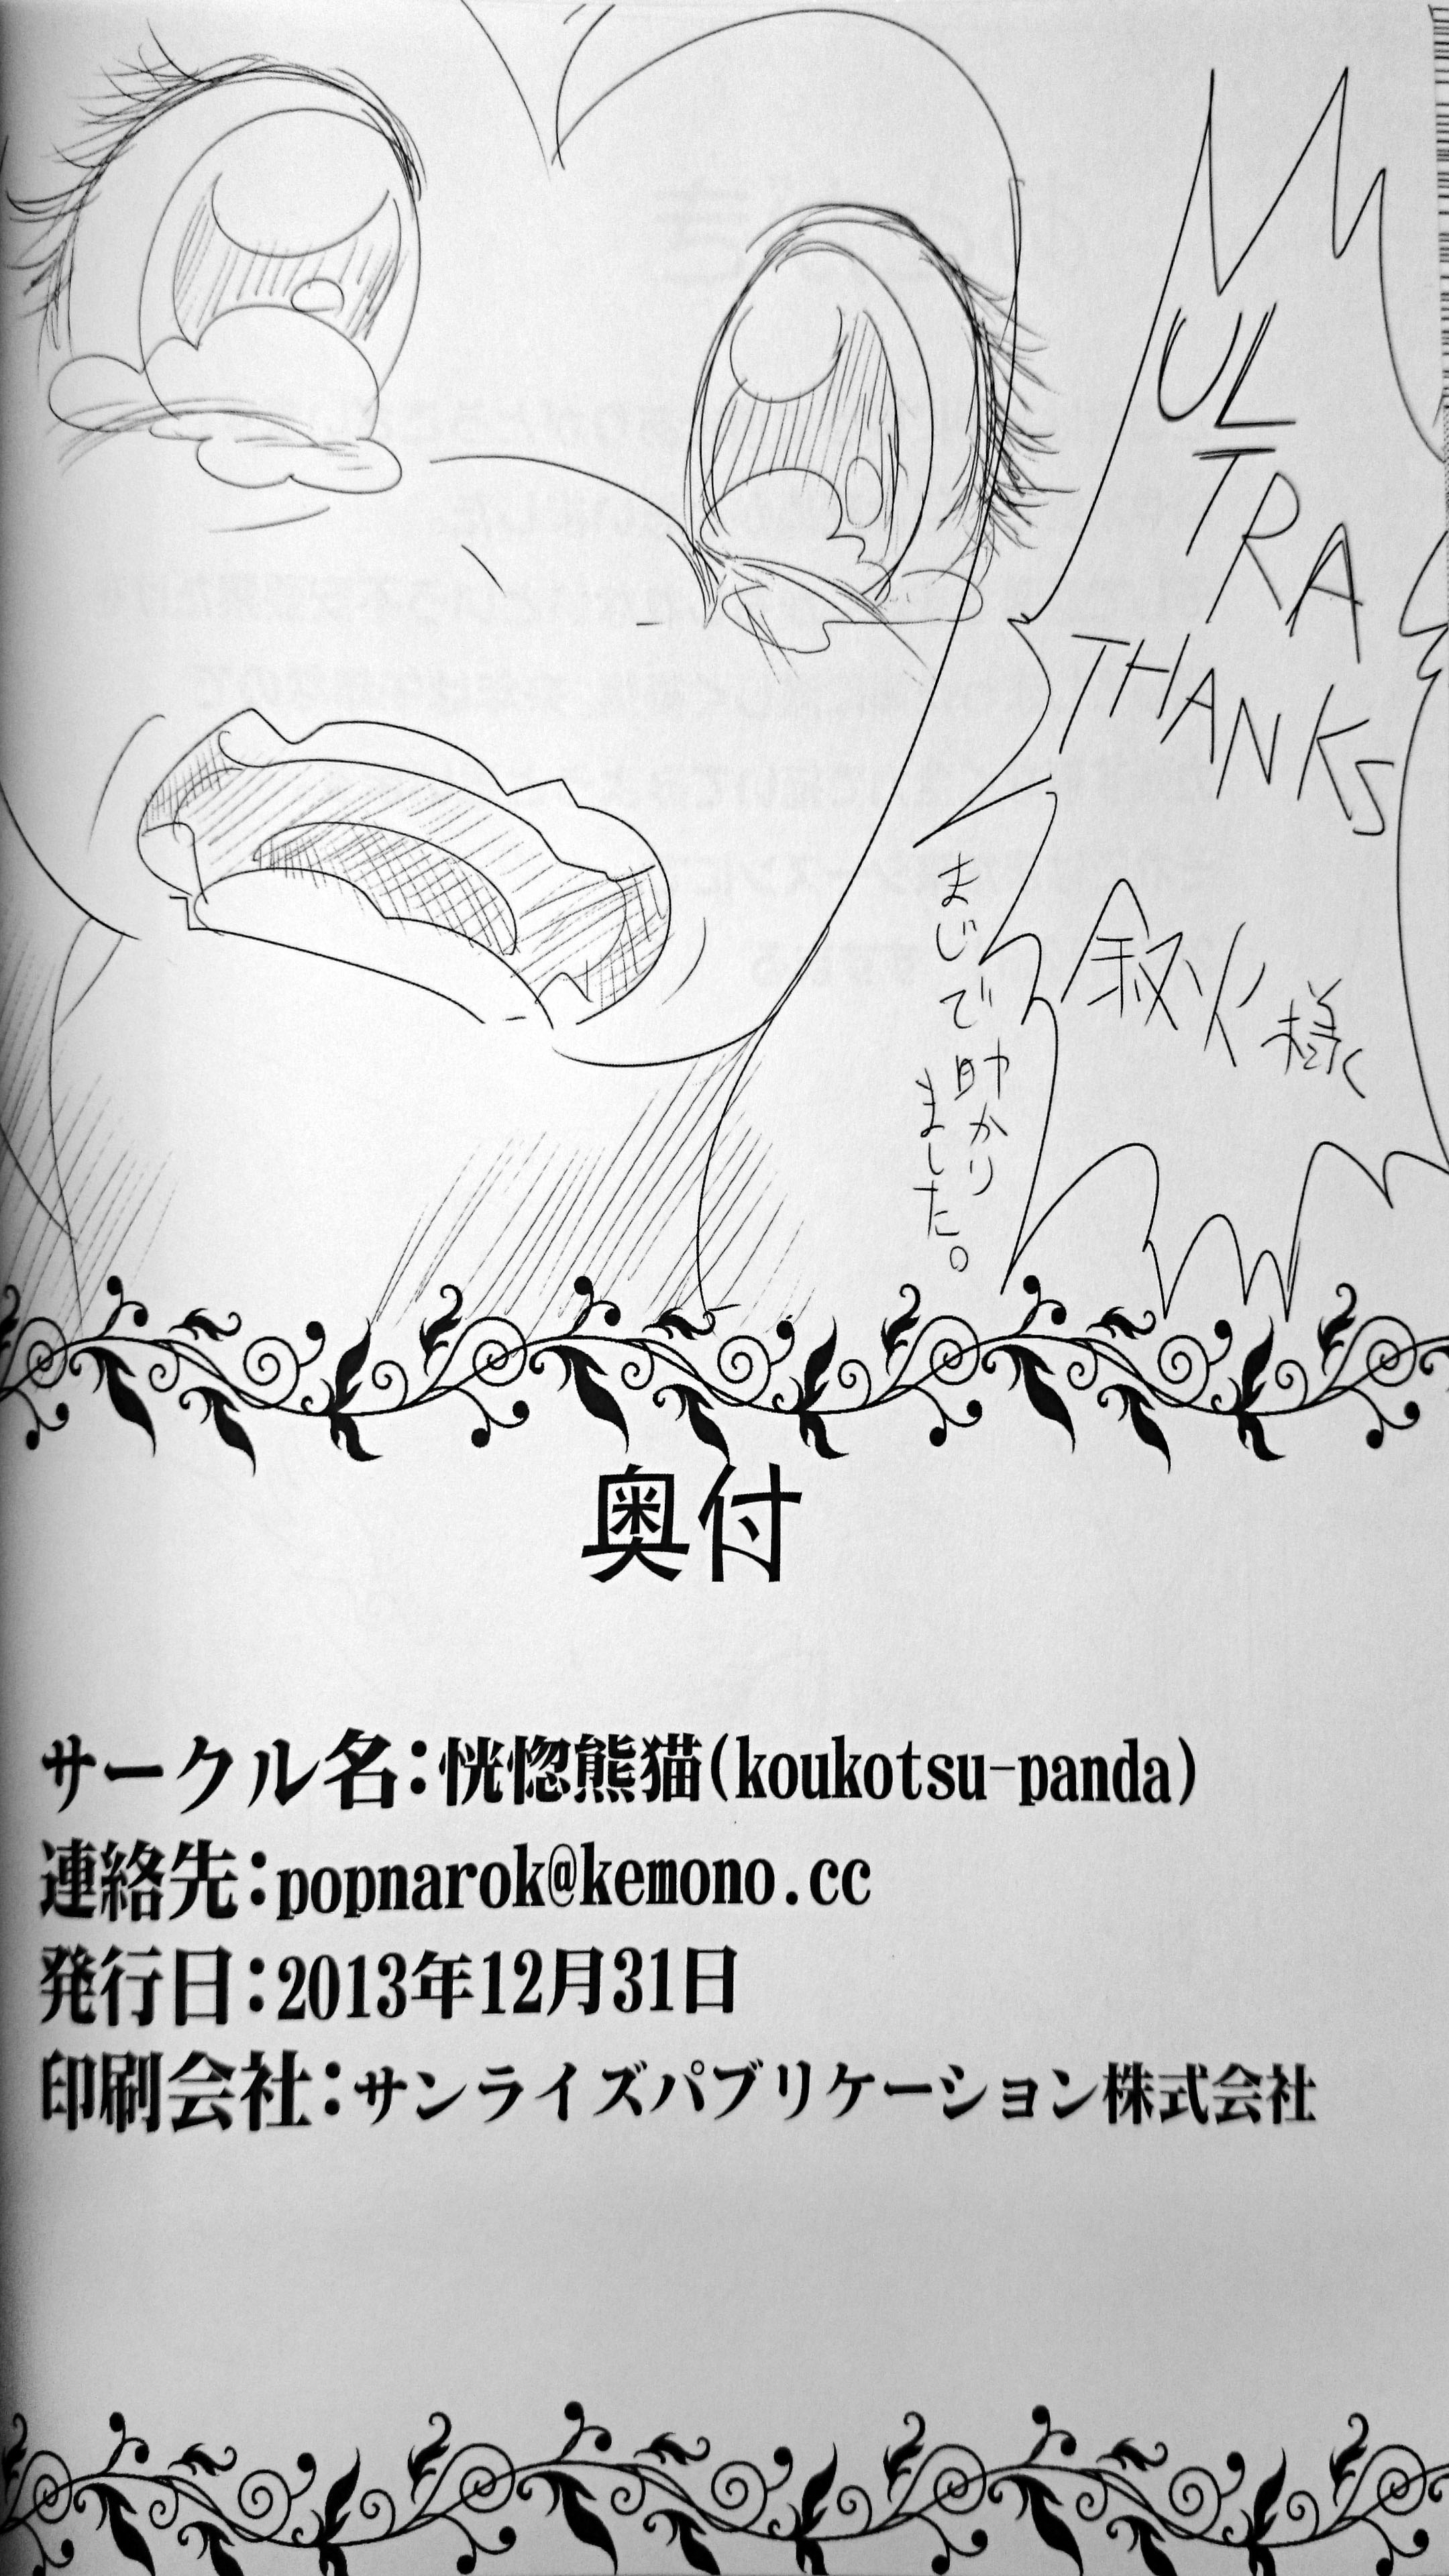 ULTRA
THANKS
叙火様
まじで助かり
ました。
奥付
サークル名：恍惚熊猫(koukotsu-panda)
連絡先：popnarok@kemono.cc
発行日：2013年12月31日
印刷会社：サンライズパブリケーション株式会社